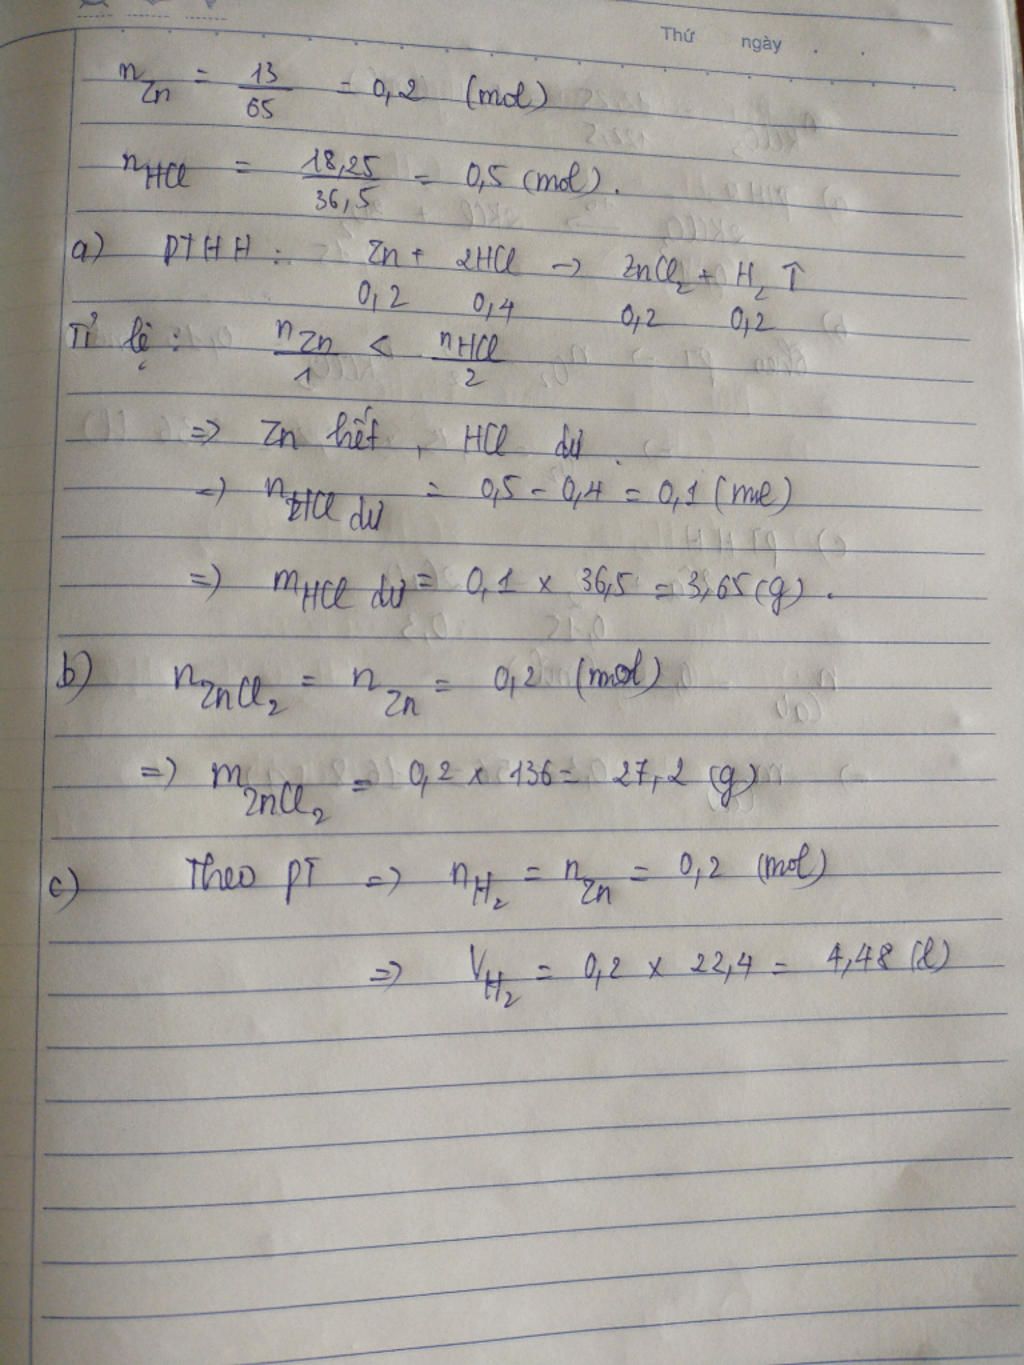 Thứ ngày
n Zn = 13/65 = 0,2 (mol)
n HCl = 18,25/36,5 = 0,5 (mol).
a) PTHH: Zn + 2HCl → ZnCl₂ + H₂ ↑
0,2 0,4 0,2 0,2
Tỉ lệ: n Zn/1 < n HCl/2
=> Zn hết, HCl dư.
=> n HCl dư = 0,5 - 0,4 = 0,1 (mol)
=> m HCl dư = 0,1 × 36,5 = 3,65 (g).
b) n ZnCl₂ = n Zn = 0,2 (mol)
=> m ZnCl₂ = 0,2 × 136 = 27,2 (g)
c) Theo PT => n H₂ = n Zn = 0,2 (mol)
=> V H₂ = 0,2 × 22,4 = 4,48 (l)